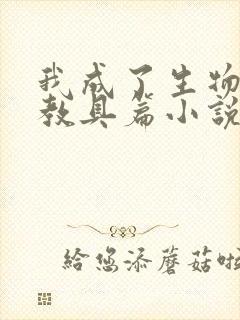 我成了生物
教具篇小說
給您添蘑菇啦